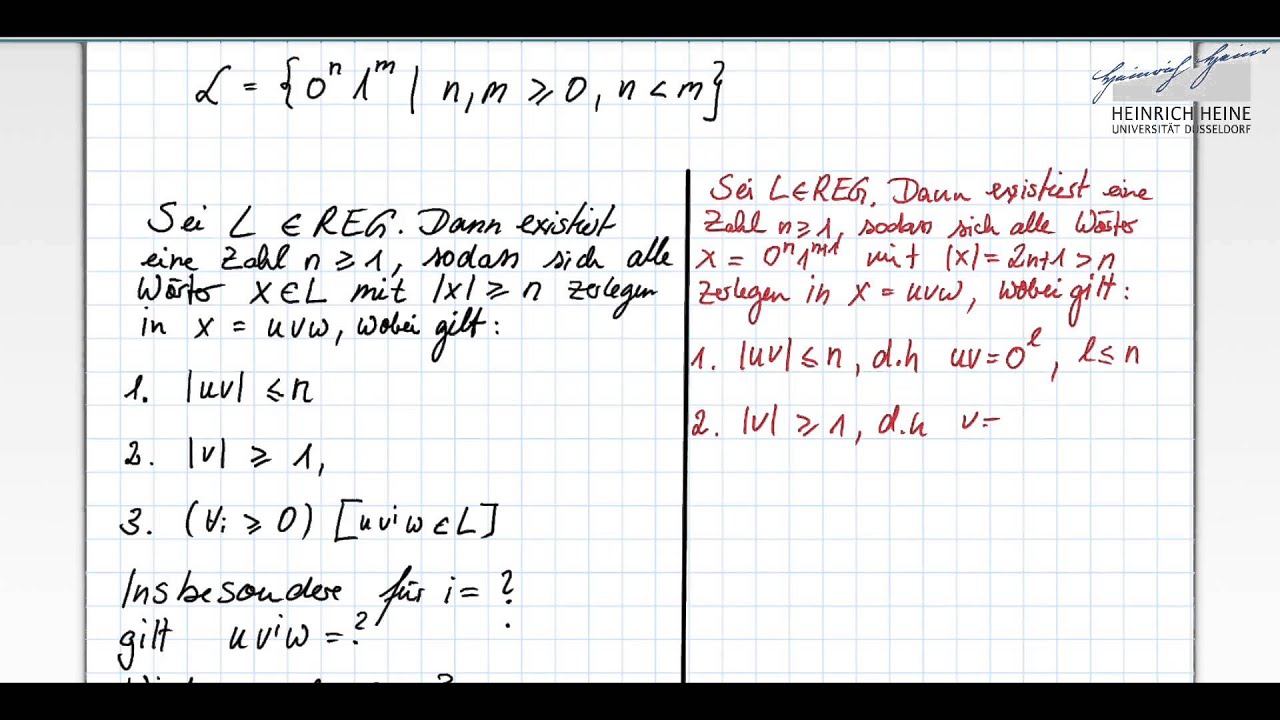 L = {0ⁿ 1ᵐ | n,m ⩾ 0, n < m}
Heinrich Heine
HEINRICH HEINE
UNIVERSITÄT DÜSSELDORF
Sei L ∈ REG. Dann existiert
eine Zahl n ⩾ 1, sodass sich alle
Wörter x ∈ L mit |x| ⩾ n zerlegen
in x = uvw, wobei gilt:
1. |uv| ⩽ n
2. |v| ⩾ 1,
3. (∀i ⩾ 0) [uvⁱw ∈ L]
Insbesondere für i = ?
gilt uvⁱw = ?
Sei L ∈ REG. Dann existiert eine
Zahl n ⩾ 1, sodass sich alle Wörter
x = 0ⁿ1ⁿ⁺¹ mit |x| = 2n+1 > n
zerlegen in x = uvw, wobei gilt:
1. |uv| ⩽ n, d.h uv = 0ˡ, l ⩽ n
2. |v| ⩾ 1, d.h v =